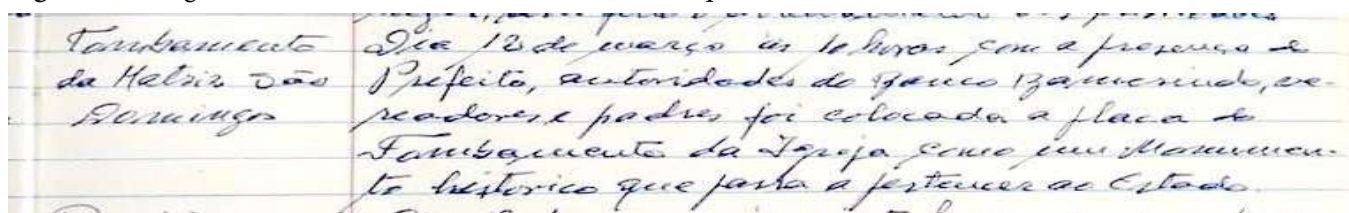 Tombamento
da Matriz São
Domingos
Dia 12 de março às 10 horas com a presença do
Prefeito, autoridades do Banco Bamerindo, ve-
readores e padres foi colocada a placa do
Tombamento da Igreja como um Monumen-
to histórico que passa a pertencer ao Estado.